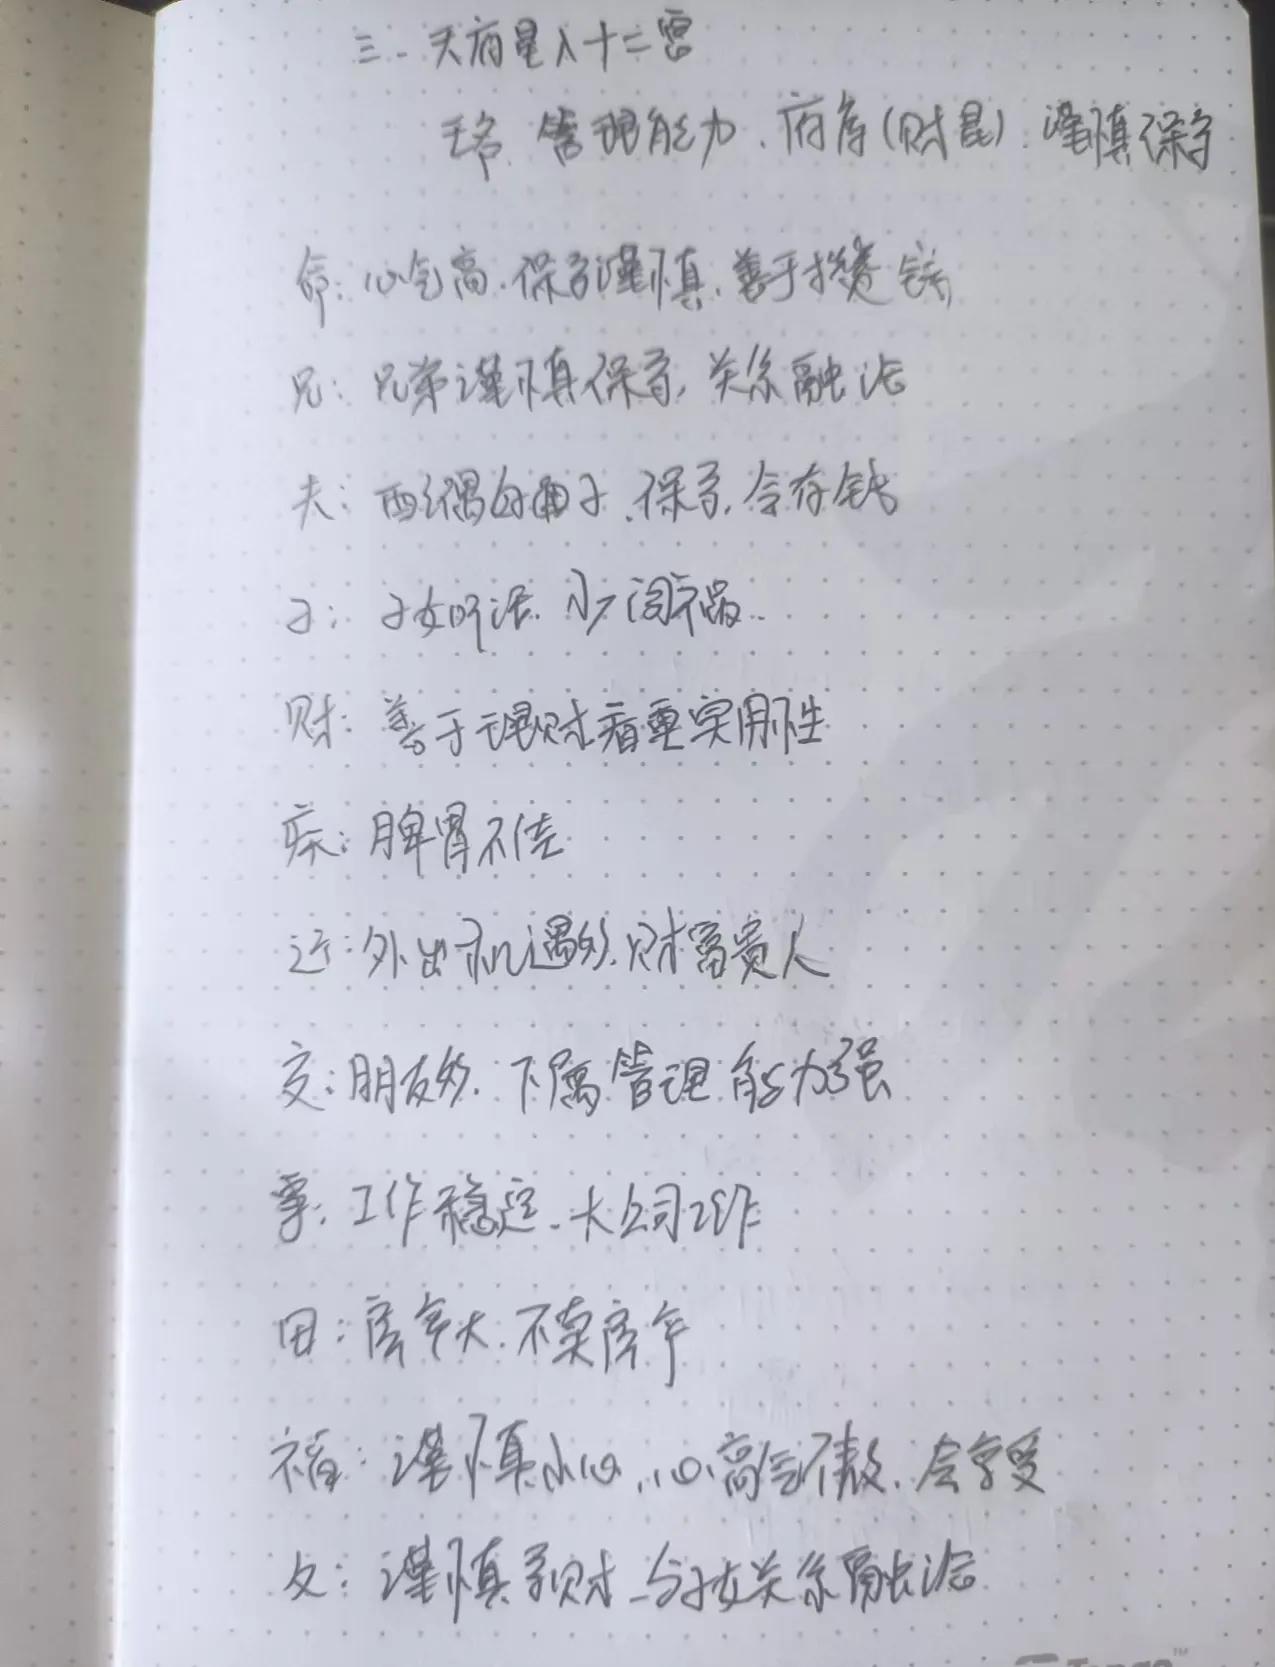 三.天府星入十二宫
管理能力.府库(财星).谨慎保守
命:心气高.保守谨慎.善于攒钱
兄:兄弟谨慎保守,关系融洽
夫:配偶有面子.保守,会存钱
子:子女听话.少闯祸..
财:善于理财看重实用性
疾:脾胃不佳
迁:外出机遇多.财富贵人
交:朋友多.下属管理能力强
事.工作稳定.大公司工作
田:房产大.不卖房产
福:谨慎小心,心高气傲.会享受
父:谨慎 财 与子女关系融洽